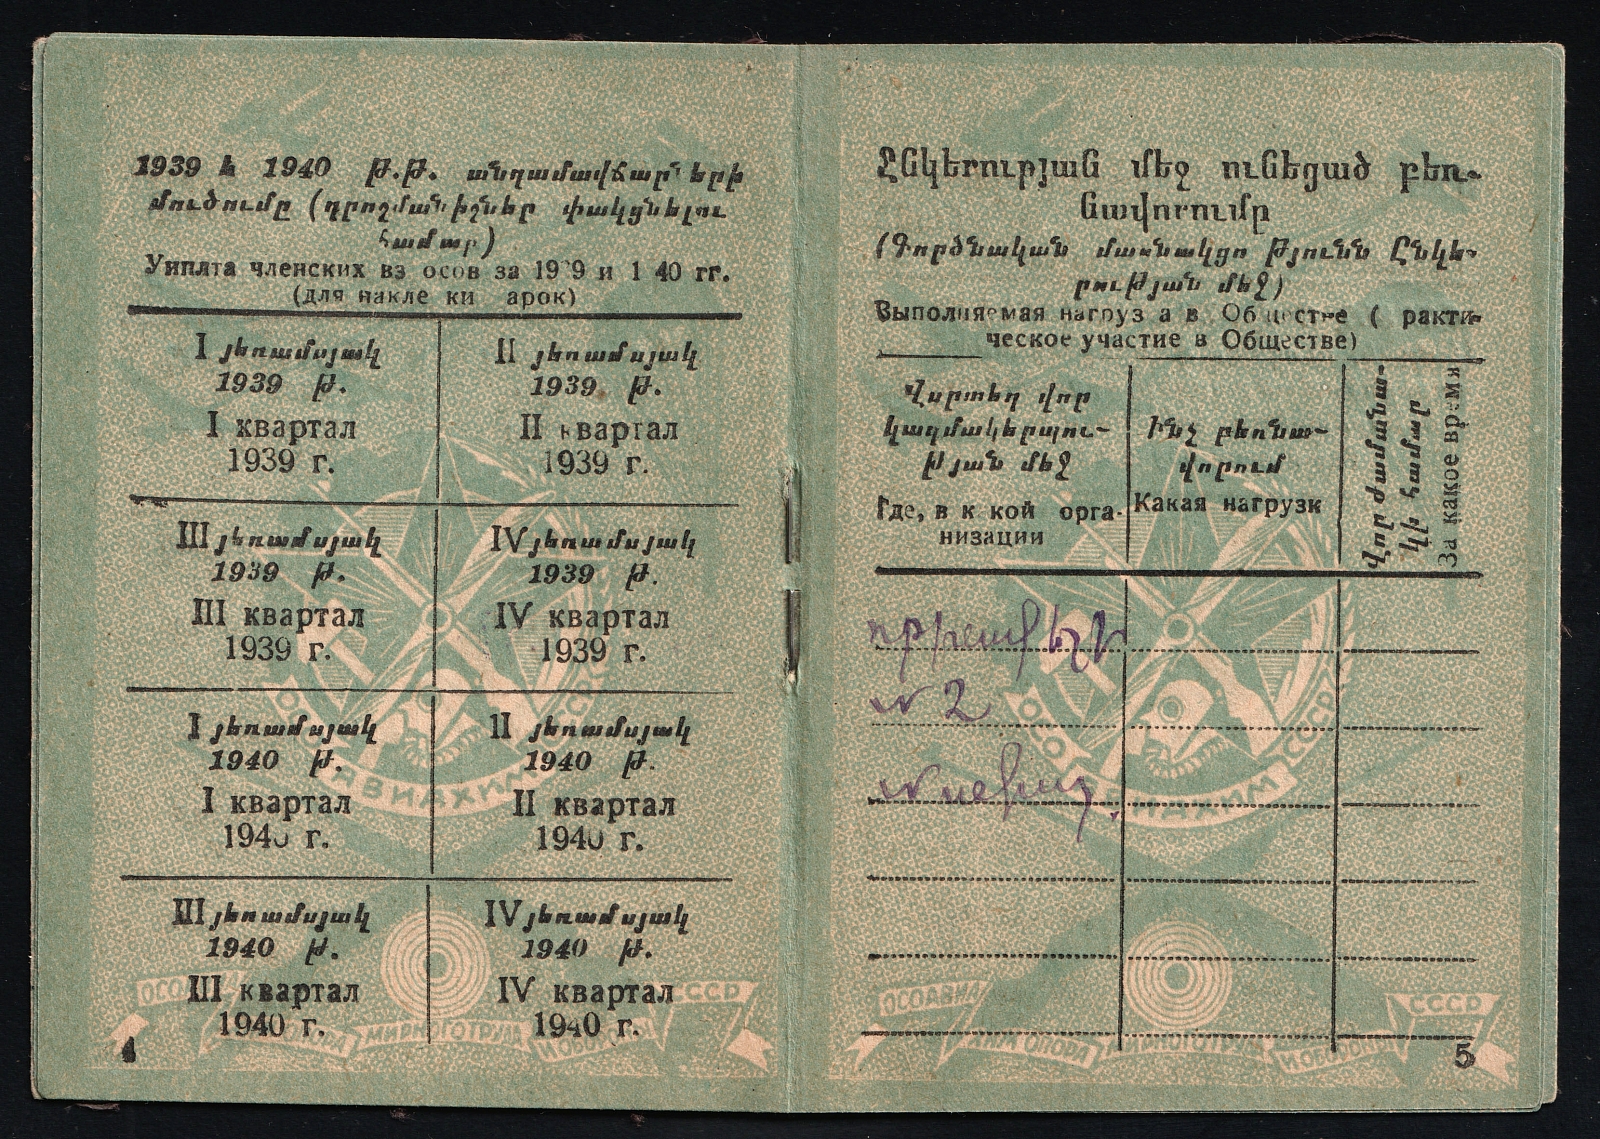 1939 և 1940 թ.թ. անդամավճարների
մուծումը (դրոշմանիշներ փակցնելու
համար)
Уиплта членских вз осов за 19 9 и 1 40 гг.
(для накле ки арок)
I յեռամսյակ
1939 թ.
I квартал
1939 г.
II յեռամսյակ
1939 թ.
II квартал
1939 г.
III յեռամսյակ
1939 թ.
III квартал
1939 г.
IV յեռամսյակ
1939 թ.
IV квартал
1939 г.
I յեռամսյակ
1940 թ.
I квартал
1940 г.
II յեռամսյակ
1940 թ.
II квартал
1940 г.
III յեռամսյակ
1940 թ.
III квартал
1940 г.
IV յեռամսյակ
1940 թ.
IV квартал
1940 г.
Ընկերության մեջ ունեցած բեռ-
նավորումը
(Գործնական մասնակցո թյունն Ընկե-
րության մեջ)
Выполняемая нагруз а в Обществе ( ракти-
ческое участие в Обществе)
Վորտեղ վոր
կազմակերպու-
թյան մեջ
Где, в к кой орга-
низации
Ի՞նչ բեռնա-
վորում
Какая нагрузк
Վոր ժամանա-
կի համար
За какое время
№ 2
5
ОСОАВИАХИМ СССР
ОСОАВИАХИМ ОПОРА МИРНОГО ТРУДА И ОБОРОНЫ СССР